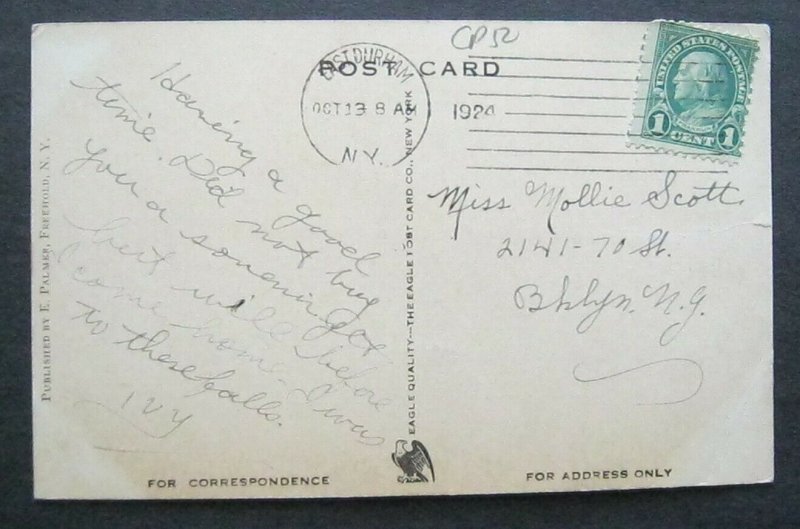 CP52
POST CARD
EAST DURHAM
OCT 13 8 AM
1924
N.Y.
UNITED STATES POSTAGE
1 CENT 1
Having a good
time. Did not buy
you a souvenir yet
but will before
I come home. I was
to these falls.
IVY
Miss Mollie Scott
2141-70 St.
Bklyn. N.Y.
PUBLISHED BY E. PALMER, FREEHOLD, N. Y.
EAGLE QUALITY---THE EAGLE POST CARD CO., NEW YORK
FOR CORRESPONDENCE
FOR ADDRESS ONLY